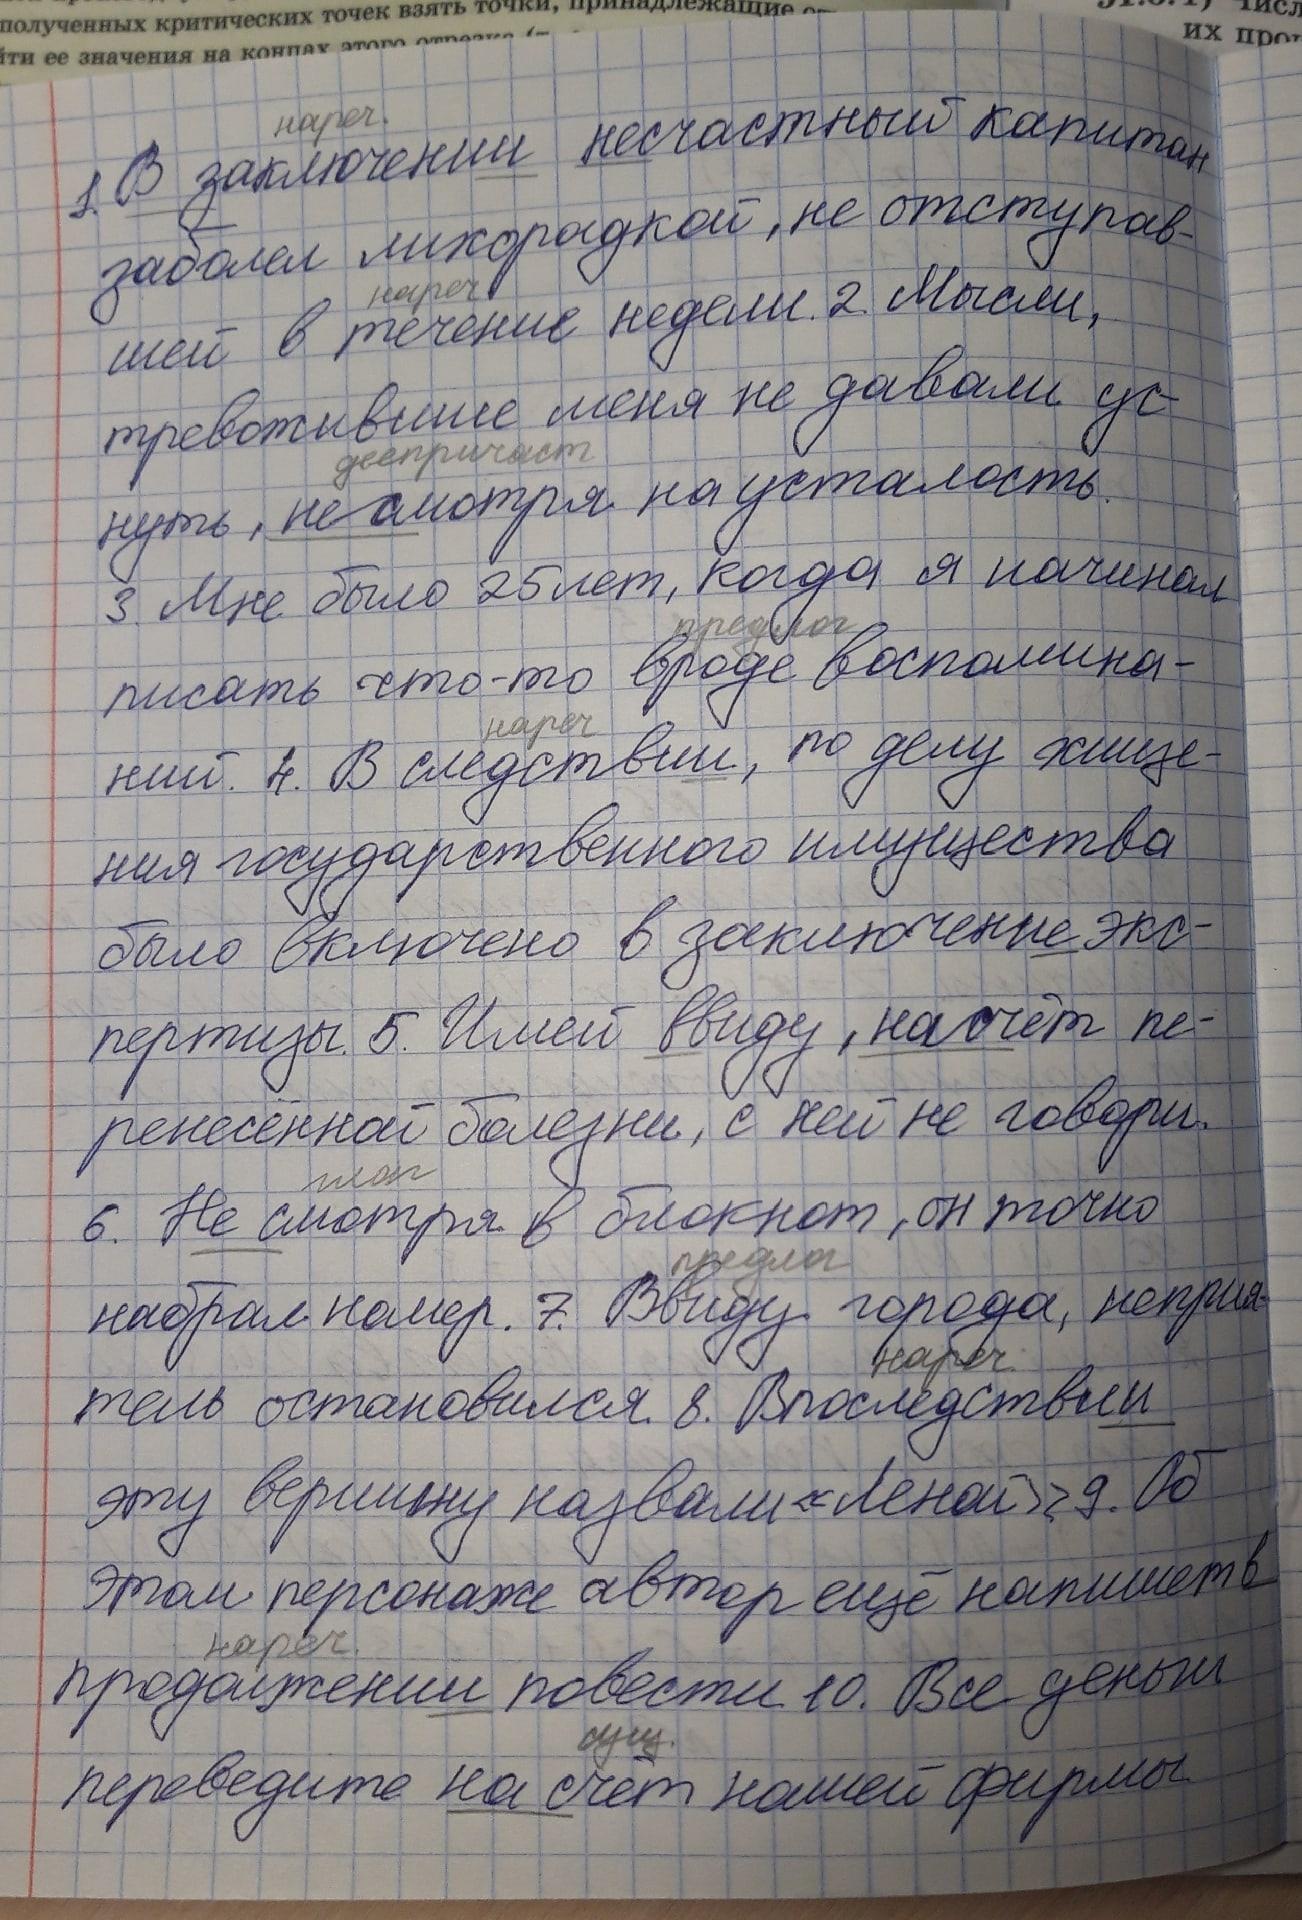 полученных критических точек взять точки, принадлежащие
йти ее значения на концах этого отрезка
их
нареч.
1. В заключении несчастный капитан
заболел лихорадкой, не отступав-
нареч
шей в течение недели. 2. Мысли,
тревожившие меня не давали ус-
деепричаст
нуть, не смотря на усталость.
3. Мне было 25 лет, когда я начинал
предлог
писать что-то вроде воспомина-
нареч
ний. 4. В следствии, по делу хище-
ния государственного имущества
было включено в заключение экс-
пертизы. 5. Имей ввиду, на счёт пе-
ренесённой болезни, с ней не говори.
6. Не смотря в блокнот, он точно
предлог
набрал номер. 7. Ввиду города, неприя-
нареч.
тель остановился. 8. Впоследствии
эту вершину назвали «Леной» 9. Об
этом персонаже автор ещё напишет в
нареч.
продолжении повести 10. Все деньги
сущ.
переведите на счёт нашей фирмы